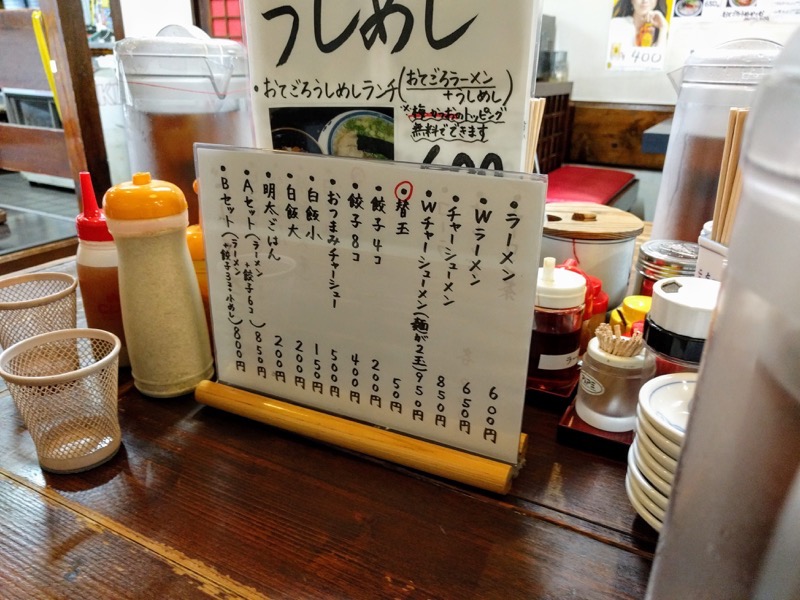 うしめし
・おてごろうしめしランチ(おてごろラーメン+うしめし)
※梅かつおのトッピング
無料でできます
600
400
・ラーメン 600円
・Wラーメン 650円
・チャーシューメン 850円
・Wチャーシューメン(麺が2玉)950円
・替玉 50円
・餃子4コ 200円
・餃子8コ 400円
・おつまみチャーシュー 500円
・白飯小 150円
・白飯大 200円
・明太ごはん 200円
・Aセット(ラーメン+餃子6コ)850円
・Bセット(ラーメン+餃子3コ・小めし)800円